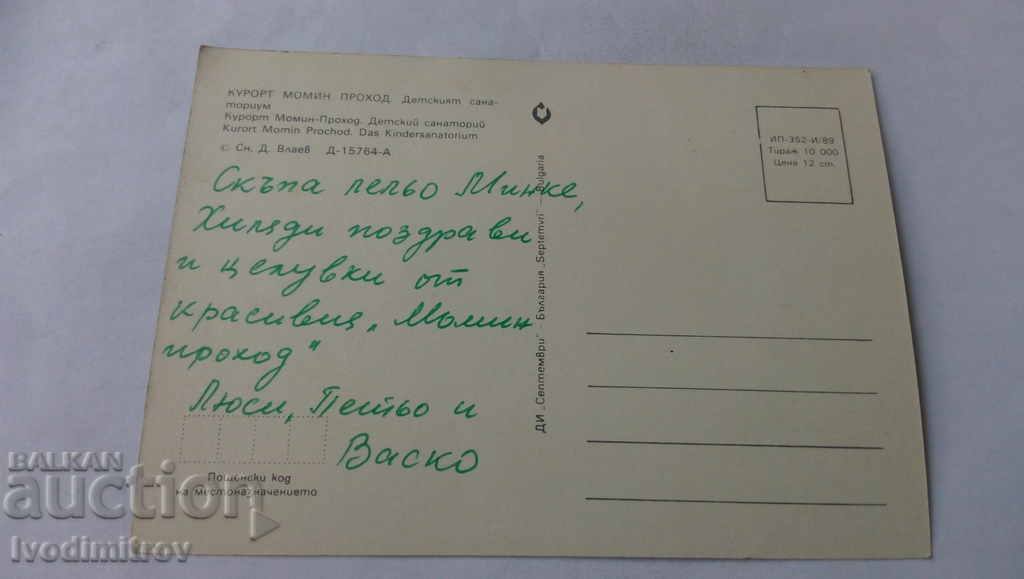 КУРОРТ МОМИН ПРОХОД. Детският сана-
ториум
Курорт Момин-Проход. Детский санаторий
Kurort Momin Prochod. Das Kindersanatorium
© Сн. Д. Влаев Д-15764-А
Скъпа лельо Минке,
Хиляди поздрави
и целувки от
красивия „Момин
проход"
Люси, Петьо и
Васко
Пощенски код
на местоназначението
ДИ „Септември" - България „Septemvri" - Bulgaria
ИП-352-И/89
Тираж 10 000
Цена 12 ст.
BALKAN
auction
Ivodimitrov